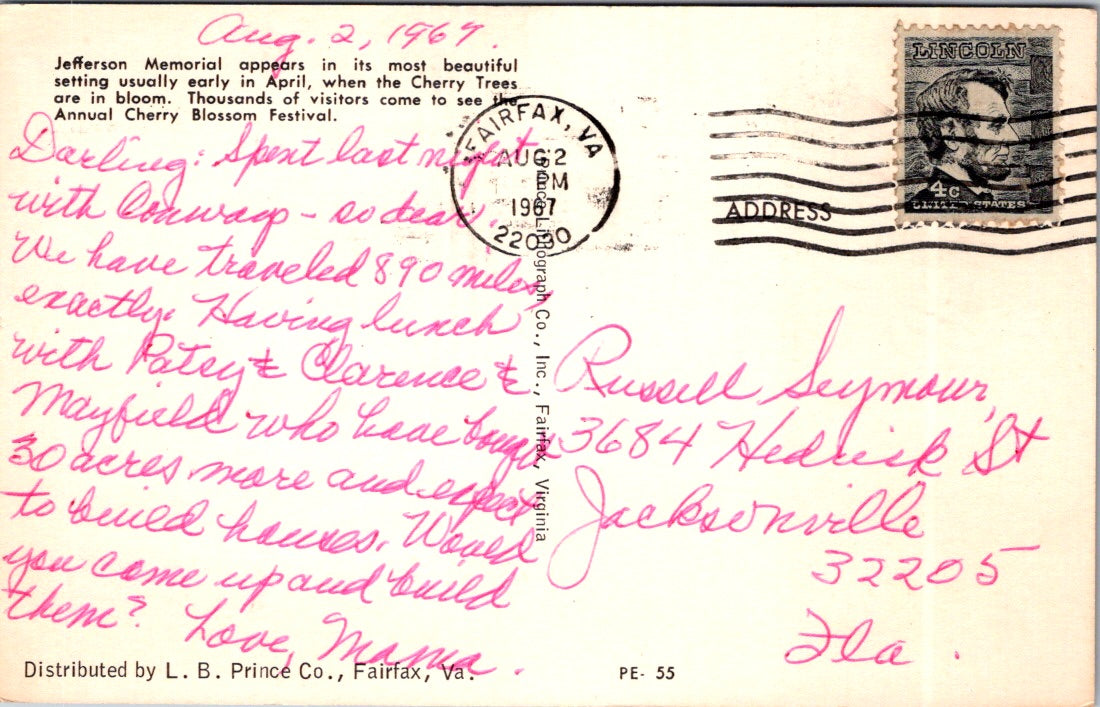 Aug. 2, 1967.
Jefferson Memorial appears in its most beautiful
setting usually early in April, when the Cherry Trees
are in bloom. Thousands of visitors come to see the
Annual Cherry Blossom Festival.
Darling: Spent last night
with Conways - so dear.
We have traveled 890 miles,
exactly. Having lunch
with Patsy & Clarence &
Mayfield who have bought
30 acres more and expect
to build houses. Would
you come up and build
them? Love, Mama.
Distributed by L. B. Prince Co., Fairfax, Va.
PE- 55
Prince Lithograph Co., Inc., Fairfax, Virginia
FAIRFAX, VA
AUG 2
PM
1967
22030
LINCOLN
4c
UNITED STATES
ADDRESS
Russell Seymour,
3684 Hedrick St
Jacksonville
32205
Fla.